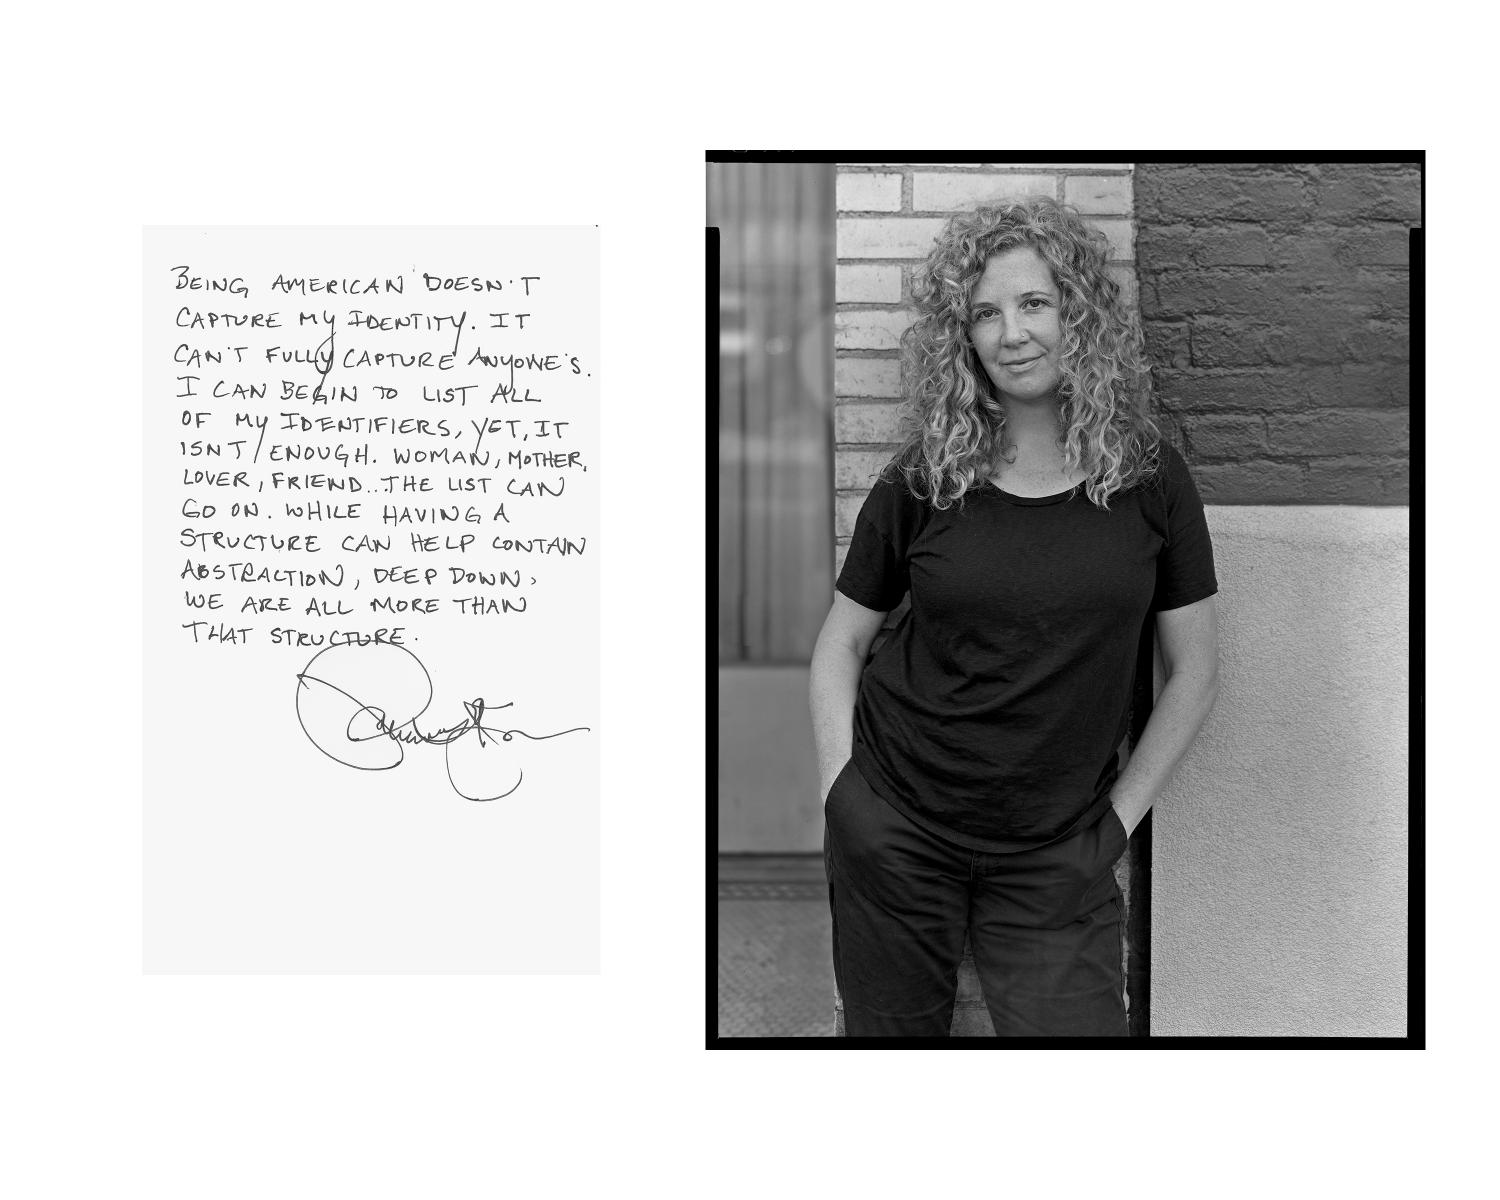 BEING AMERICAN DOESN'T
CAPTURE MY IDENTITY. IT
CAN'T FULLY CAPTURE ANYONE'S.
I CAN BEGIN TO LIST ALL
OF MY IDENTIFIERS, YET, IT
ISNT ENOUGH. WOMAN, MOTHER,
LOVER, FRIEND...THE LIST CAN
GO ON. WHILE HAVING A
STRUCTURE CAN HELP CONTAIN
ABSTRACTION, DEEP DOWN,
WE ARE ALL MORE THAN
THAT STRUCTURE.